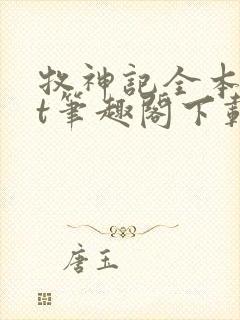 牧神記全本
t筆趣閣下載
唐玉